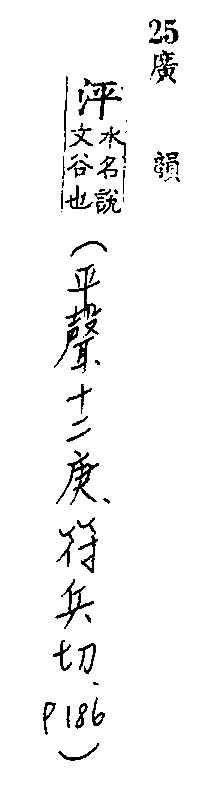 25廣韻
泙水名說文谷也
(平聲、十二庚、符兵切、P186)